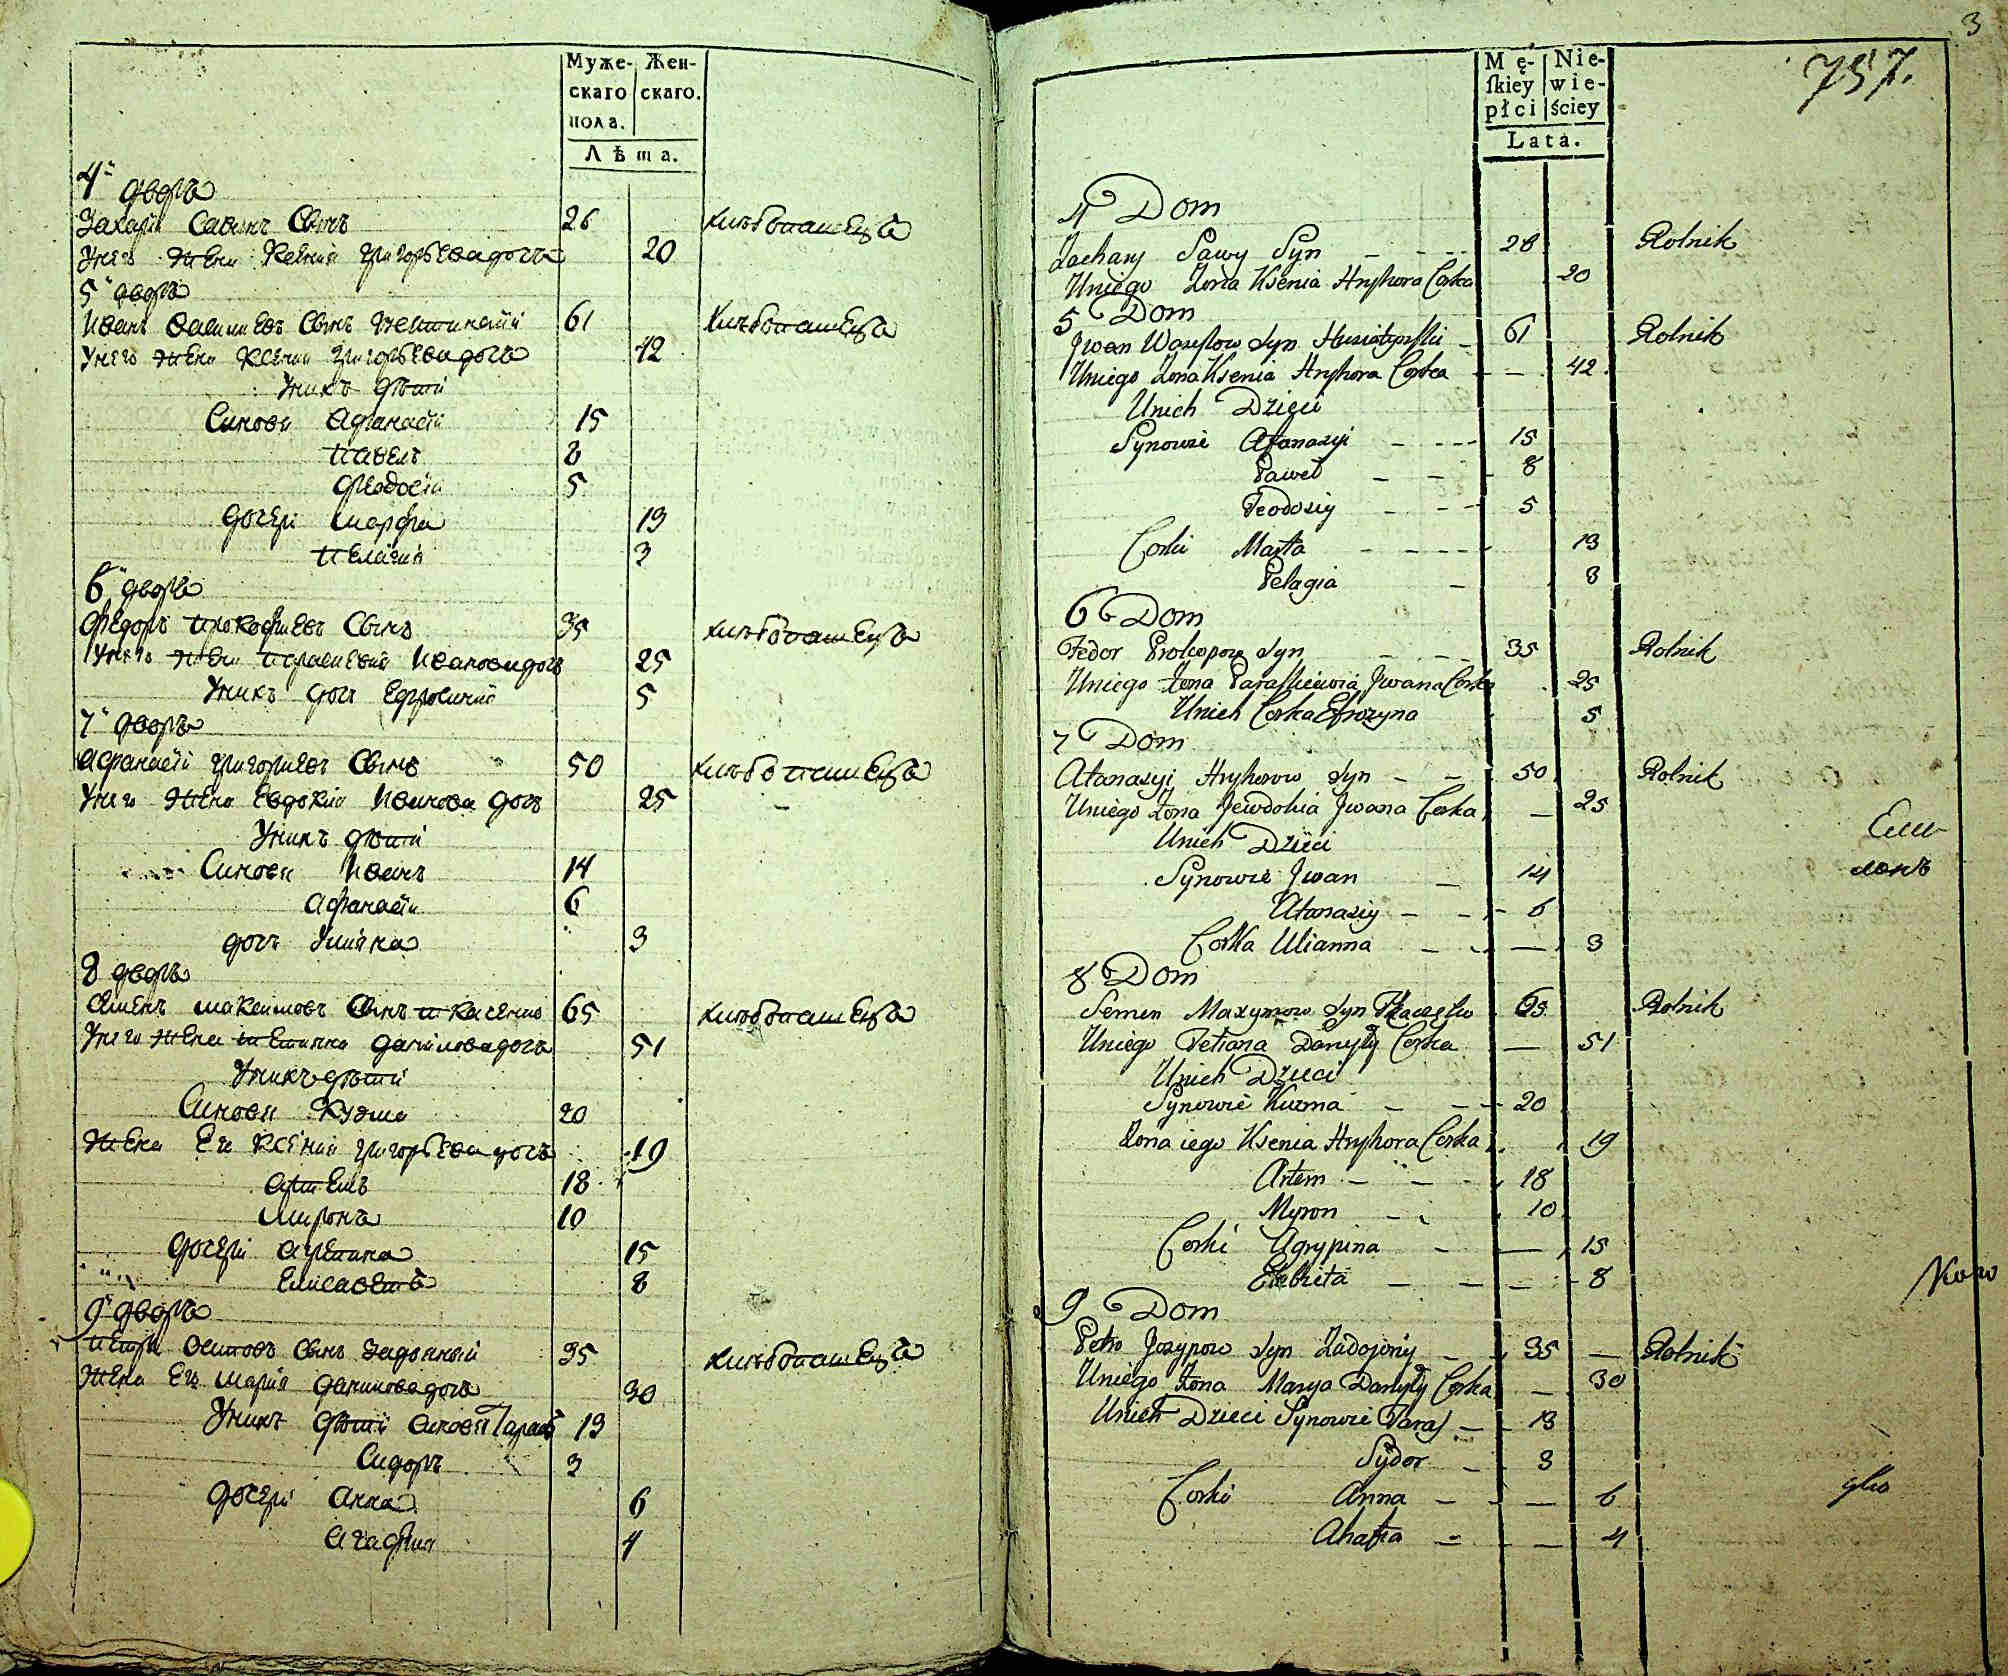 Муже-
скаго
пола.
Жен-
скаго.
Лѣта.
4й дворъ
Захарій Савинъ Сынъ 26 хлѣбопашецъ
У него жена Ксения Григорьева дочь 20
5й дворъ
Иванъ Васильевъ Сынъ 61 хлѣбопашецъ
У него жена Ксения Григорьева дочь 42
У нихъ дѣти
Синови Афанасій 15
Павелъ 8
Феодосій 5
дочери Марфа 13
Пелагия 3
6й дворъ
Федоръ Прокофиевъ Сынъ 35 хлѣбопашецъ
У него жена Параскевия Иванова дочь 25
У нихъ дочь Ефросиния 5
7й дворъ
Афанасій Григориевъ Сынъ 50 хлѣбопашецъ
У него жена Евдокия Иванова дочь 25
У нихъ дѣти
Синови Иванъ 14
Афанасій 6
дочь Улияна 3
8 дворъ
Семенъ Максимовъ Сынъ 65 хлѣбопашецъ
У него жена Тетияна Данилова дочь 51
У нихъ дѣти
Синови Кузма 20
Жена Его Ксения Григорьева дочь 19
Артемъ 18
Миронъ 10
дочери Агрепина 15
Елисаветъ 8
9й дворъ
Петръ Осиповъ Сынъ Задойный 35 хлѣбопашецъ
Жена Его Мария Данилова дочь 30
У нихъ дѣти Синови Тарасъ 13
Сидоръ 3
дочери Анна 6
Агафия 4
3
757.
Mę-
ſkiey
płci
Nie-
wie-
ściey
Lata.
4 Dom
Zachary Sawy Syn 26 Rolnik
Uniego Zona Ksenia Hryhora Corka 20
5 Dom
Jwan Wasylow Syn Husiatynski 61 Rolnik
Uniego Zona Ksenia Hryhora Corka 42
Unich Dzieci
Synowie Afanasyi 15
Paweł 8
Teodoziy 5
Corki Marta 13
Pelagia 3
6 Dom
Fedor Prokopow Syn 35 Rolnik
Uniego Zona Paraskiewia Jwana Corka 25
Unich Corka Efrozyna 5
7 Dom
Atanazyi Hryhorow Syn 50 Rolnik
Uniego Zona Jewdokia Jwana Corka 25
Unich Dzieci
Synowie Jwan 14
Atanaziy 6
Corka Ulianna 3
8 Dom
Semen Maxymow Syn 65 Rolnik
Uniego Tetiana Danyły Corka 51
Unich Dzieci
Synowie Kuzma 20
Zona iego Ksenia Hryhora Corka 19
Artem 18
Myron 10
Corki Agrypina 15
Elzbieta 8
9 Dom
Petro Jozypow Syn Zadojony 35 Rolnik
Uniego Zona Marya Danyły Corka 30
Unich Dzieci Synowie Taras 13
Sydor 3
Corki Anna 6
Ahafia 4